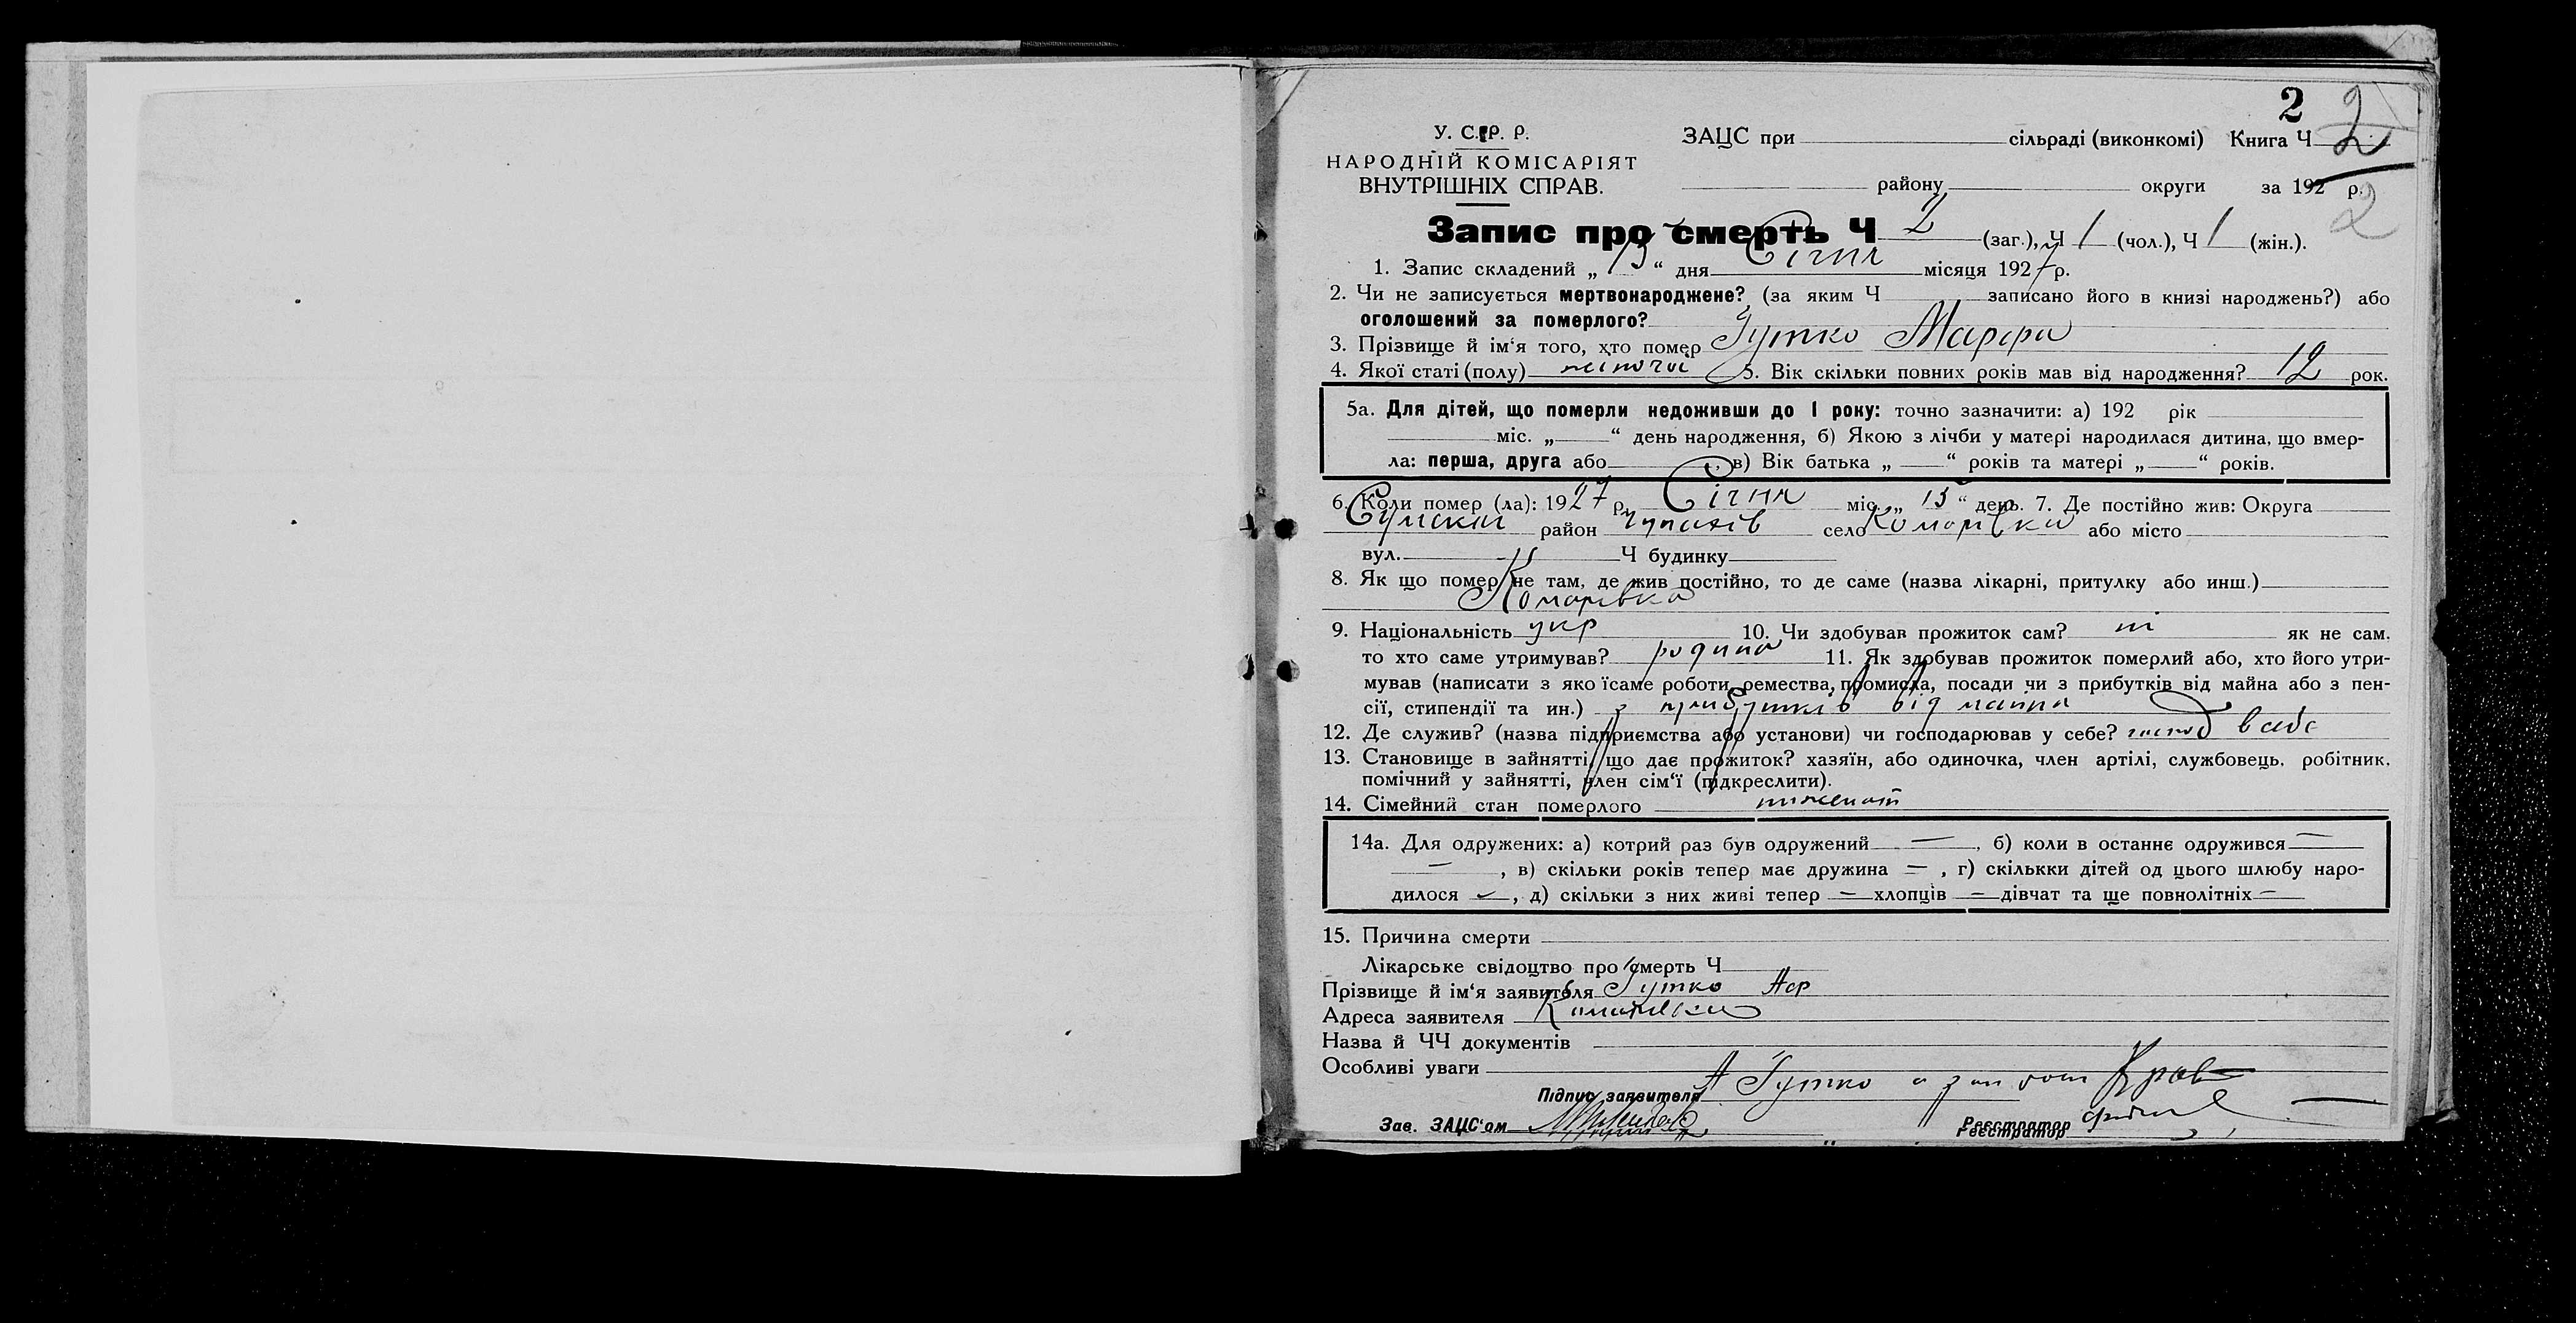 2
2
У. С. Р. Р.
НАРОДНІЙ КОМІСАРІЯТ
ВНУТРІШНІХ СПРАВ.
ЗАЦС при сільраді (виконкомі) Книга Ч 2
району округи за 192 р.
2
Запис про смерть Ч 2 (заг.), Ч 1 (чол.), Ч 1 (жін.).
1. Запис складений „ 15 “ дня Січня місяця 1927 р.
2. Чи не записується мертвонароджене? (за яким Ч записано його в книзі народжень?) або
оголошений за померлого?
3. Прізвище й ім‘я того, хто помер Гутко Марфа
4. Якої статі (полу) жіночої 5. Вік скільки повних років мав від народження? 12 рок.
5а. Для дітей, що померли недоживши до 1 року: точно зазначити: а) 192 рік
міс. „ “ день народження, б) Якою з лічби у матері народилася дитина, що вмер-
ла: перша, друга або , в) Вік батька „ “ років та матері „ “ років.
6. Коли помер (ла): 1927 р. Січня міс. „ 15 “ день. 7. Де постійно жив: Округа
Сумская район село Комарівка або місто
вул. Ч будинку
8. Як що помер не там, де жив постійно, то де саме (назва лікарні, притулку або инш.)
Комарівка
9. Національність укр 10. Чи здобував прожиток сам? ні як не сам.
то хто саме утримував? родина 11. Як здобував прожиток померлий або, хто його утри-
мував (написати з яко їсаме роботи, ремества, промисла, посади чи з прибутків від майна або з пен-
сії, стипендії та ин.) з прибутків від майна
12. Де служив? (назва підприємства або установи) чи господарював у себе? в себе
13. Становище в зайнятті, що дає прожиток? хазяїн, або одиночка, член артілі, службовець, робітник,
помічний у зайнятті, член сім‘ї (підкреслити).
14. Сімейний стан померлого
14а. Для одружених: а) котрий раз був одружений — , б) коли в останнє одружився —
— , в) скільки років тепер має дружина — , г) скількки дітей од цього шлюбу наро-
дилося — , д) скільки з них живі тепер — хлопців — дівчат та ще повнолітніх —
15. Причина смерти
Лікарське свідоцтво про смерть Ч
Прізвище й ім‘я заявителя Гутко
Адреса заявителя Комарівка
Назва й ЧЧ документів
Особливі уваги
Підпис заявителя А Гутко
Зав. ЗАЦС‘ом Реєстратор